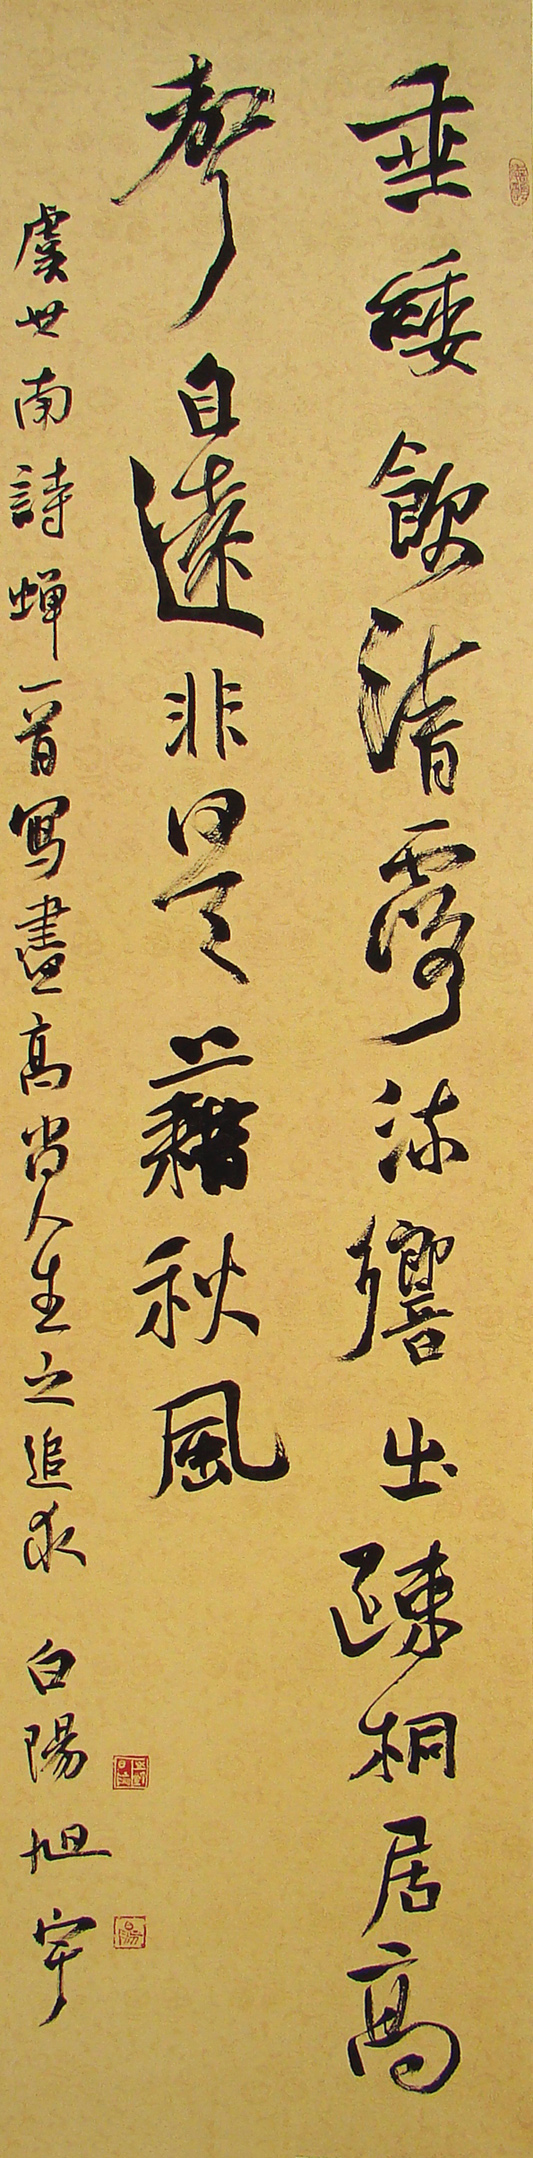 垂緌飲清露流響出疎桐居高
聲自遠非是藉秋風
虞世南詩蟬一首寫盡高尚人生之追求 白陽旭宇